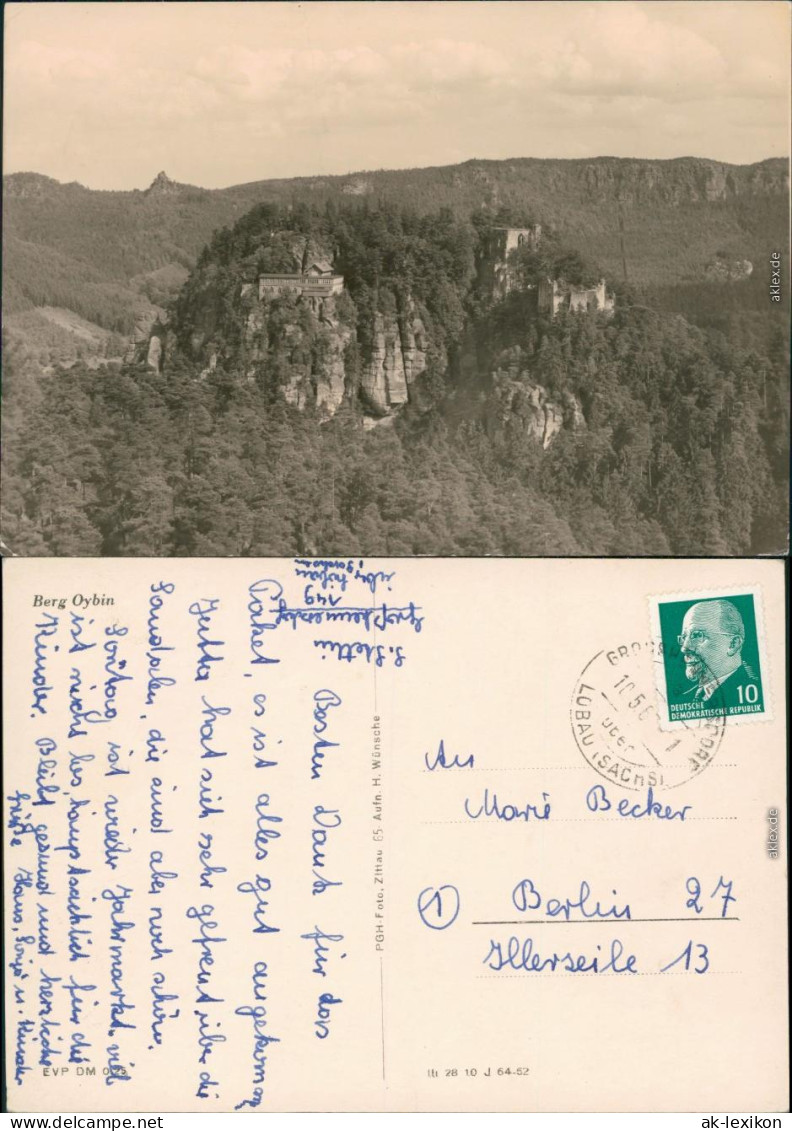 aklex.de
Berg Oybin
S. Stettin
Großhennersdorf
149
über Löbau
Besten Dank für das
Paket, es ist alles gut angekomm
Jutta hat sich sehr gefreut über die
Sandalen, die sind aber noch schön.
Sonntag ist wieder Jahrmarkt, viel
ist nicht los, hauptsächlich für die
Kinder. Bleibt gesund und herzliche
Grüße Hans, u. Kinder
EVP DM 0,25
PGH-Foto, Zittau 65 Aufn. H. Wünsche
LÖBAU (SACHS)
über
DEUTSCHE
DEMOKRATISCHE REPUBLIK
10
An
Marie Becker
1 Berlin 27
Illerzeile 13
aklex.de
III 28 10 J 64-52
ak-lexikon.de
ak-lexikon.com